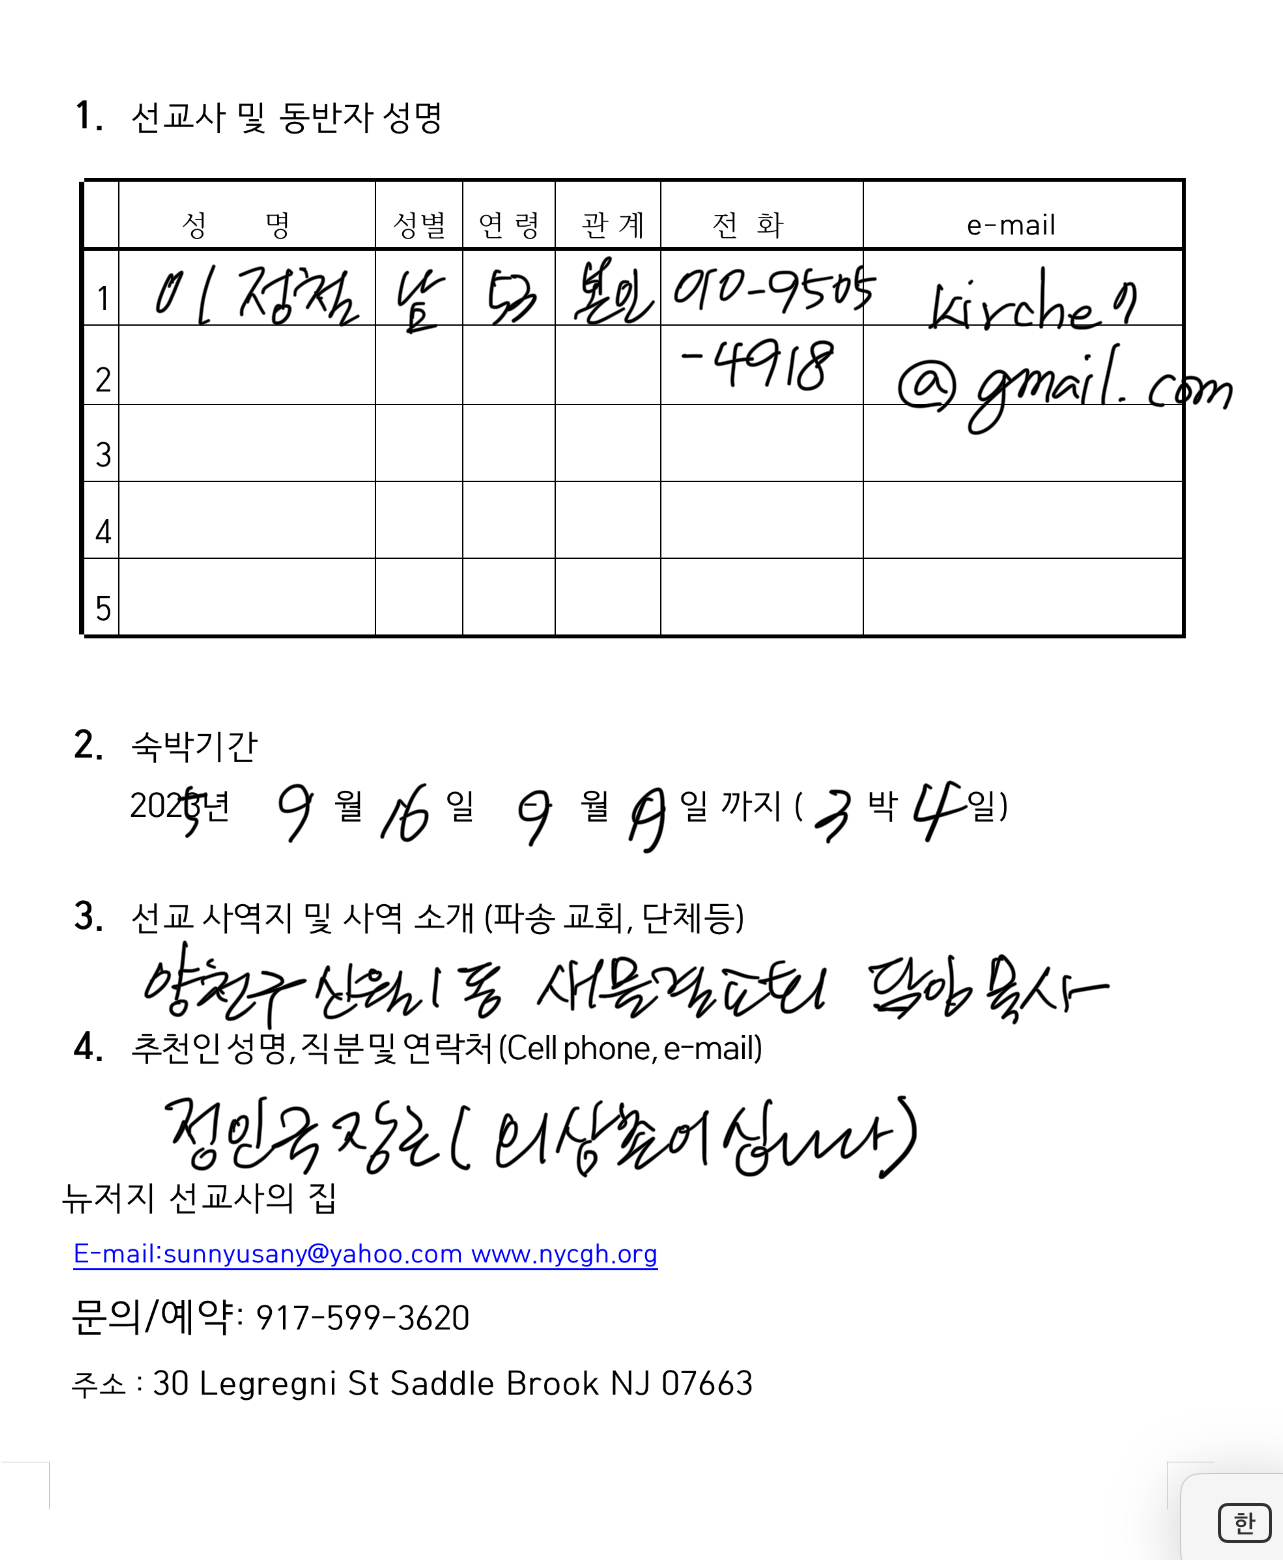 1. 선교사 및 동반자 성명
성 명 성별 연 령 관 계 전 화 e-mail
1 이 정철 남 53 본인 010-9505 kirche
2 -4918 @gmail.com
3
4
5
2. 숙박기간
2025년 9 월 16 일 9 월 19 일 까지 ( 3 박 4 일)
3. 선교 사역지 및 사역 소개 (파송 교회, 단체등)
양천구 신월1동 새물결교회 담임목사
4. 추천인 성명, 직분 및 연락처 (Cell phone, e-mail)
정인국 장로 (
뉴저지 선교사의 집
E-mail:sunnyusany@yahoo.com www.nycgh.org
문의/예약: 917-599-3620
주소 : 30 Legregni St Saddle Brook NJ 07663
한